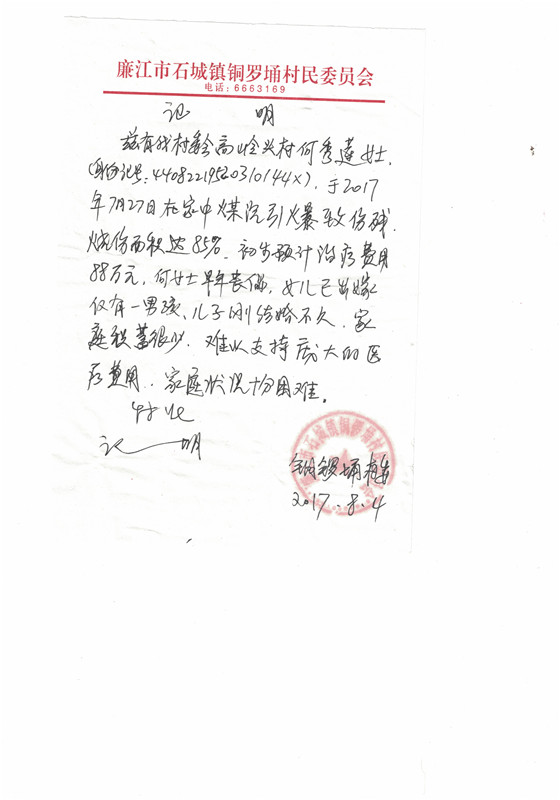 廉江市石城镇铜罗埇村民委员会
电话：6663169
记 明
兹有我村 高山仝兴村何秀莲女士.
(身份记号: ), 于2017
年7月27日在家中煤气引爆致伤残.
烧伤面积达85%. 初步预计治疗费用
88万元. 何女士早年丧偶, 女儿已出嫁
仅有一男孩、儿子刚结婚不久. 家
庭积蓄很少. 难以支持庞大的医
疗费用.. 家庭状况十分困难。
特此
记 明
铜锣埇村委
2017.8.4
石城镇铜罗埇村